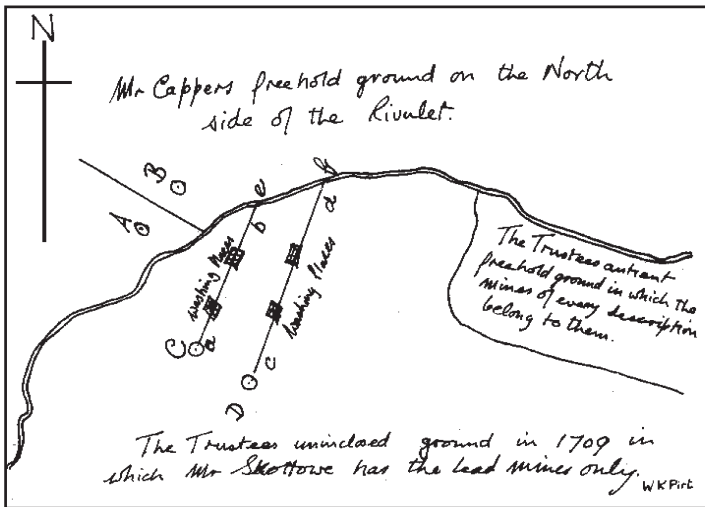 N
Mr Cappers freehold ground on the North
side of the Rivulet.
B
A
e
b
f
d
Washing Places
Washing Places
C
a
D
c
The Trustees antient
freehold ground in which the
mines of every description
belong to them.
The Trustees uninclosed ground in 1709 in
which Mr Skottowe has the lead mines only.
W K Pirt